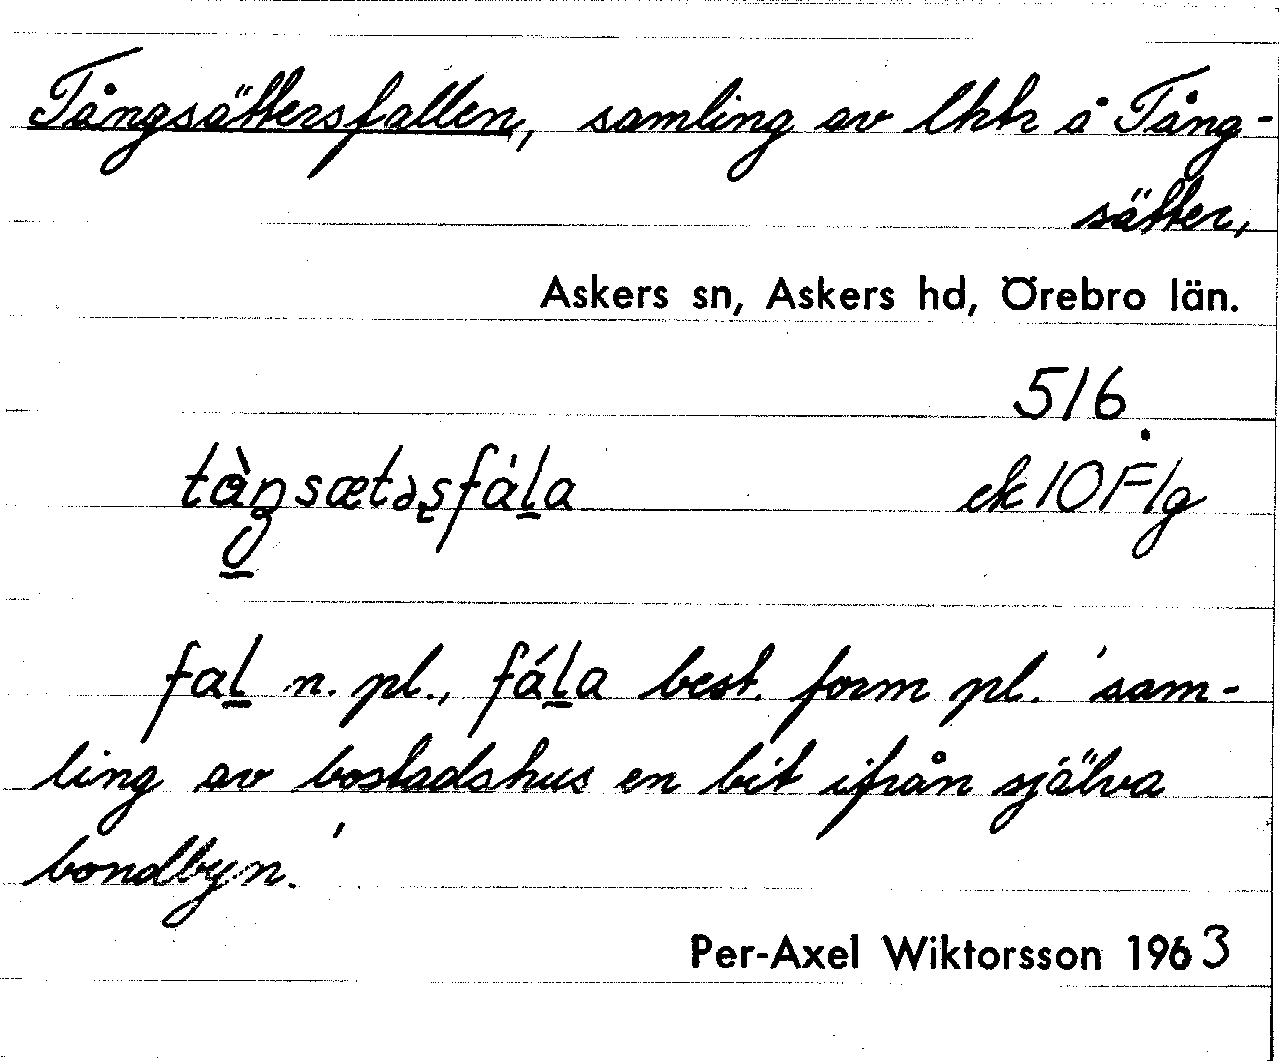 Tångsättersfallen, samling av lhtr å Tång-
sätter,
Askers sn, Askers hd, Örebro län.
516.
tàŋsætəʂfáḻa ek 10 F 1g
faḻ n. pl., fáḻa best. form pl. 'sam-
ling av bostadshus en bit ifrån själva
bondbyn.'
Per-Axel Wiktorsson 1963